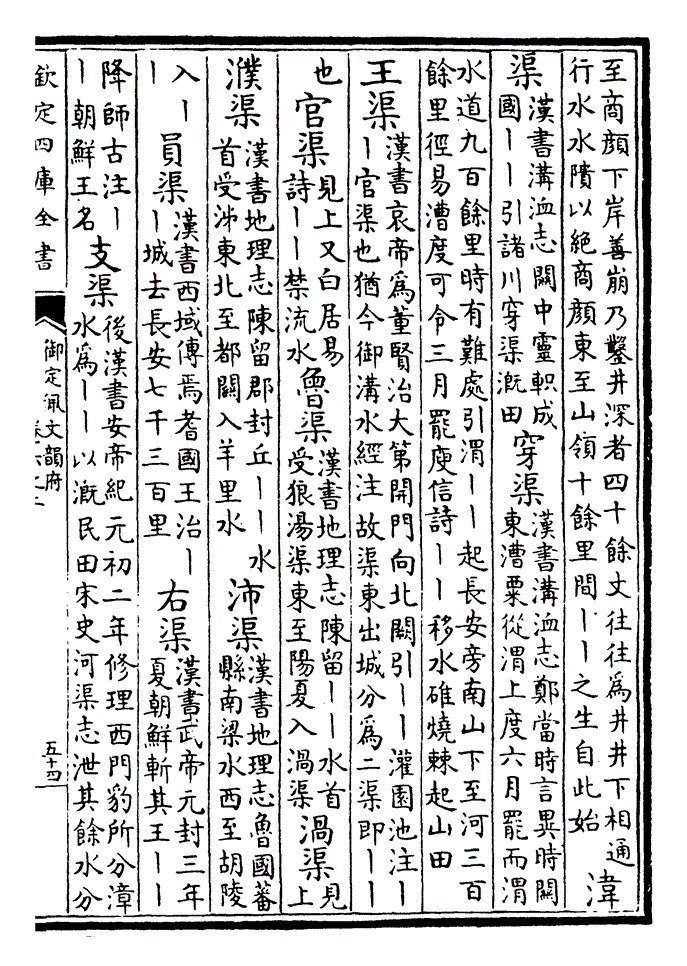 至商顔下岸善崩乃鑿井深者四十餘丈往往為井井下相通
行水水隤以絶商顔東至山領十餘里間丨丨之生自此始
湋
渠
漢書溝洫志闗中靈軹成
國丨丨引諸川穿渠溉田
穿渠
漢書溝洫志鄭當時言異時闗
東漕粟從渭上度六月罷而渭
水道九百餘里時有難處引渭丨丨起長安旁南山下至河三百
餘里徑易漕度可令三月罷庾信詩丨丨移水碓燒棘起山田
王渠
漢書哀帝為董賢治大第開門向北闕引丨丨灌園池注丨
丨官渠也猶今御溝水經注故渠東出城分為二渠即丨丨
也
官渠
見上又白居易
詩丨丨禁流水
魯渠
漢書地理志陳留丨丨水首
受狼湯渠東至陽夏入渦渠
渦渠
見
上
濮渠
漢書地理志陳留郡封丘丨丨水
首受泲東北至都闗入羊里水
沛渠
漢書地理志魯國蕃
縣南梁水西至胡陵
入丨
丨
員渠
漢書西域傳焉耆國王治丨
丨城去長安七千三百里
右渠
漢書武帝元封三年
夏朝鮮斬其王丨丨
降師古注丨
丨朝鮮王名
支渠
後漢書安帝紀元初二年修理西門豹所分漳
水為丨丨以溉民田宋史河渠志泄其餘水分
欽定四庫全書
御定佩文韻府
五十四